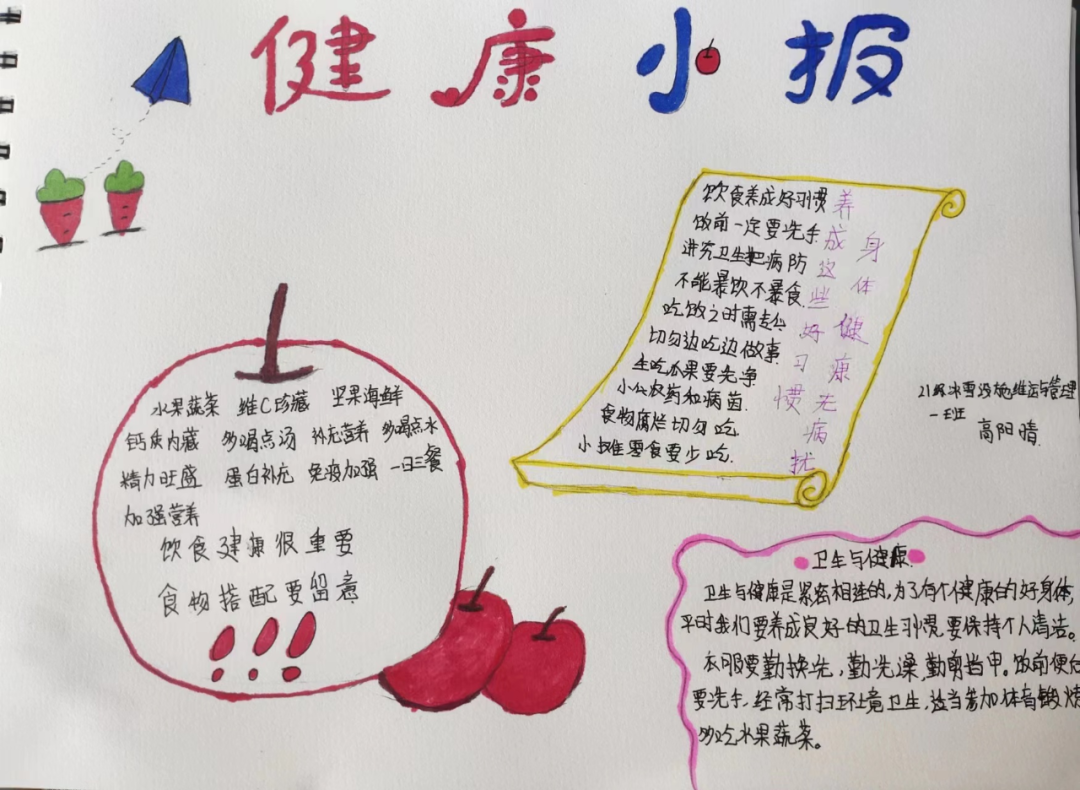 健康小报
饮食养成好习惯
饭前一定要洗手
讲究卫生把病防
不能暴饮不暴食
吃饭之时需专心
切勿边吃边做事
生吃瓜果要洗净
小心农药和病菌
食物腐烂切勿吃
小摊零食要少吃
养成这些好习惯
身体健康无病扰
水果蔬菜 维C珍藏 坚果海鲜
钙质内藏 多喝点汤 补充营养 多喝点水
精力旺盛 蛋白补充 免疫加强 一日三餐
加强营养
饮食健康很重要
食物搭配要留意
!!!
21级冰雪设施维运与管理
一班
高阳晴
卫生与健康
卫生与健康是紧密相连的,为了有个健康的好身体,
平时我们要养成良好的卫生习惯,要保持个人清洁。
衣服要勤换洗,勤洗澡,勤剪指甲。饭前便后
要洗手,经常打扫环境卫生,适当参加体育锻炼
多吃水果蔬菜。